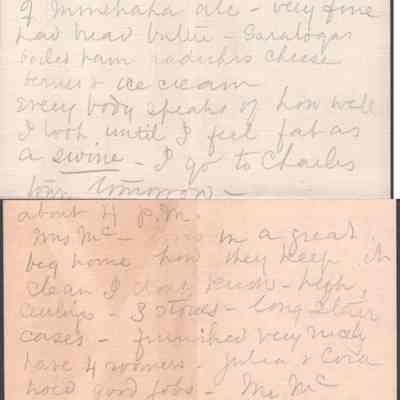 of Minnehaha ale - very fine
had bread butter - Saratoga
boiled ham radishes cheese
berries & ice cream
Every body speaks of how well
I look until I feel fat as
a swine - I go to Charles
town tomorrow -
about 4 P.M.
Mrs Mc - in a great
big home how they keep it
clean I dont know - high
ceilings - 3 stories - long stair
cases - furnished very nicely
have 4 roomers - Julia & Cora
hold good jobs - Mr Mc